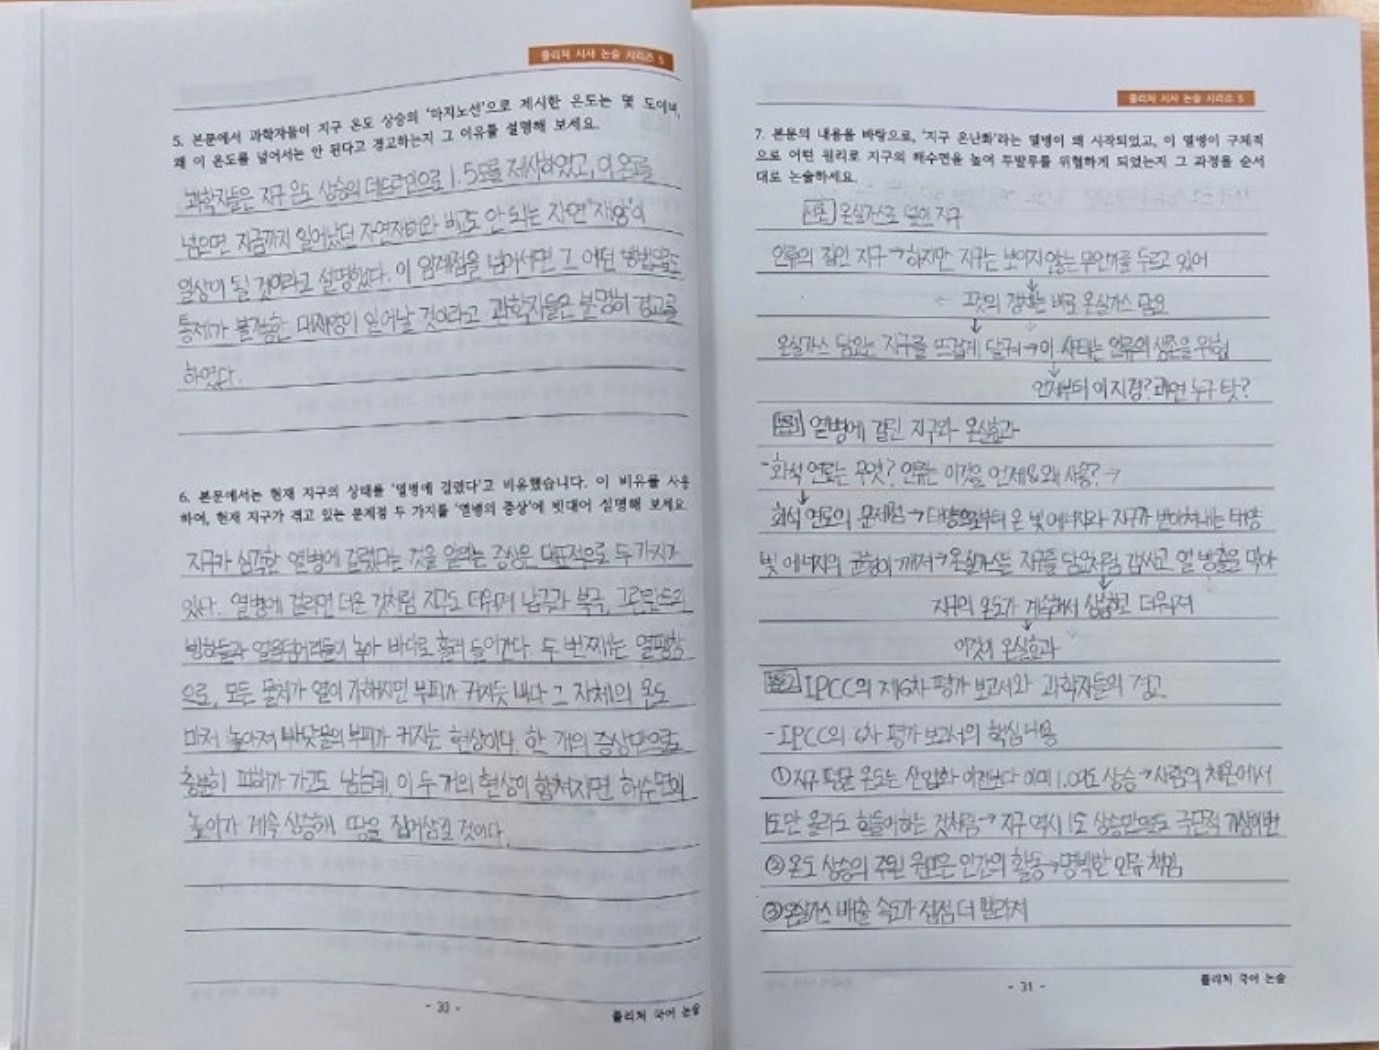 플리처 시사 논술 시리즈 5
5. 본문에서 과학자들이 지구 온도 상승의 '마지노선'으로 제시한 온도는 몇 도이며,
왜 이 온도를 넘어서는 안 된다고 경고하는지 그 이유를 설명해 보세요.
과학자들은 지구 온도 상승의 데드라인으로 1.5도를 제시하였고, 이 온도를
넘으면 지금까지 일어났던 자연재해와 비교도 안 되는 자연'재앙'이
일상이 될 것이라고 설명했다. 이 임계점을 넘어서면 그 어떤 방법으로도
통제가 불가능한 대재앙이 일어날 것이라고 과학자들은 분명히 경고를
하였다.
6. 본문에서는 현재 지구의 상태를 '열병에 걸렸다'고 비유했습니다. 이 비유를 사용
하여, 현재 지구가 겪고 있는 문제점 두 가지를 '열병의 증상'에 빗대어 설명해 보세요
지구가 심각한 열병에 걸렸다는 것을 알리는 증상은 대표적으로 두 가지가
있다. 열병에 걸리면 더운 것처럼 지구도 더워져 남극과 북극, 그린란드의
빙하들과 얼음덩어리들이 녹아 바다로 흘러 들어간다. 두 번째는 열팽창
으로, 모든 물체가 열이 가해지면 부피가 커지듯 바다 그 자체의 온도
마저 높아져 바닷물의 부피가 커지는 현상이다. 한 개의 증상만으로도
충분히 피해가 가고도 남는데, 이 두 개의 현상이 합쳐지면 해수면의
높이가 계속 상승해 땅을 집어삼킬 것이다.
- 30 -
플리처 국어 논술
플리처 시사 논술 시리즈 5
7. 본문의 내용을 바탕으로, '지구 온난화'라는 열병이 왜 시작되었고, 이 열병이 구체적
으로 어떤 원리로 지구의 해수면을 높여 투발루를 위협하게 되었는지 그 과정을 순서
대로 논술하세요.
서론 온실가스로 덮인 지구
인류의 집인 지구 → 하지만 지구는 보이지 않는 무언가를 두르고 있어
그것의 정체는 바로 온실가스 담요
온실가스 담요는 지구를 뜨겁게 달궈 → 이 사태는 인류의 생존을 위협
언제부터 이 지경? 과연 누구 탓?
본론1 열병에 걸린 지구와 온실효과
- 화석 연료는 무엇? 인류는 이것을 언제&왜 사용? →
화석 연료의 문제점 → 태양으로부터 온 빛 에너지와 지구가 받아쳐내는 태양
빛 에너지의 균형이 깨져 → 온실가스는 지구를 담요처럼 감싸고 열 방출을 막아
지구의 온도가 계속해서 상승하고 더워져
이것이 온실효과
본론2 IPCC의 제6차 평가 보고서와 과학자들의 경고
- IPCC의 6차 평가 보고서의 핵심내용
① 지구 평균 온도는 산업화 이전보다 이미 1.09도 상승 → 사람의 체온에서
1도만 올라도 힘들어하는 것처럼 → 지구 역시 1도 상승만으로도 극단적 기상이변
② 온도 상승의 주된 원인은 인간의 활동 → 명백한 인류 책임
③ 온실가스 배출 속도가 점점 더 빨라져
- 31 -
플리처 국어 논술